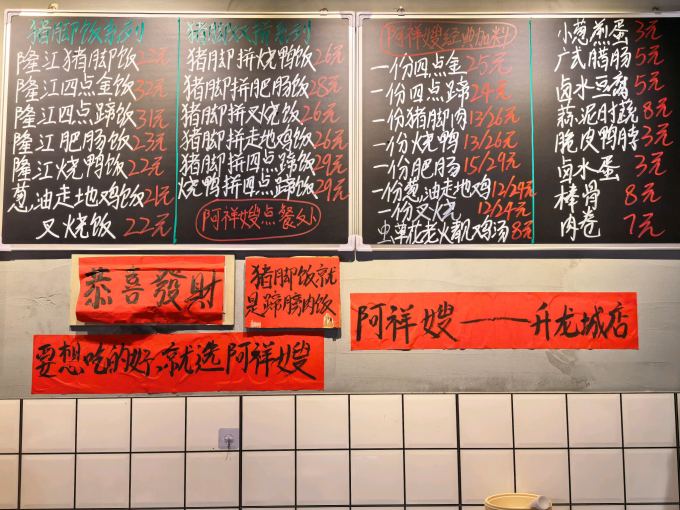 猪脚饭系列
隆江猪脚饭22元
隆江四点金饭32元
隆江四点蹄饭31元
隆江肥肠饭23元
隆江烧鸭饭22元
葱油走地鸡饭21元
叉烧饭 22元
猪脚双拼系列
猪脚拼烧鸭饭26元
猪脚拼肥肠饭28元
猪脚拼叉烧饭26元
猪脚拼走地鸡饭26元
猪脚拼四点蹄饭29元
烧鸭拼四点蹄饭29元
阿祥嫂点餐处
阿祥嫂经典加料
一份四点金25元
一份四点蹄24元
一份猪脚肉13/26元
一份烧鸭13/26元
一份肥肠15/29元
一份葱油走地鸡12/24元
一份叉烧 12/24元
虫草花老火靓鸡汤8元
小葱煎蛋3元
广式腊肠5元
卤水豆腐5元
蒜泥时蔬8元
脆皮鸭脖3元
卤水蛋 3元
棒骨 8元
肉卷 7元
恭喜發财
猪脚饭就
是蹄膀肉饭
阿祥嫂——升龙城店
要想吃的好,就选阿祥嫂